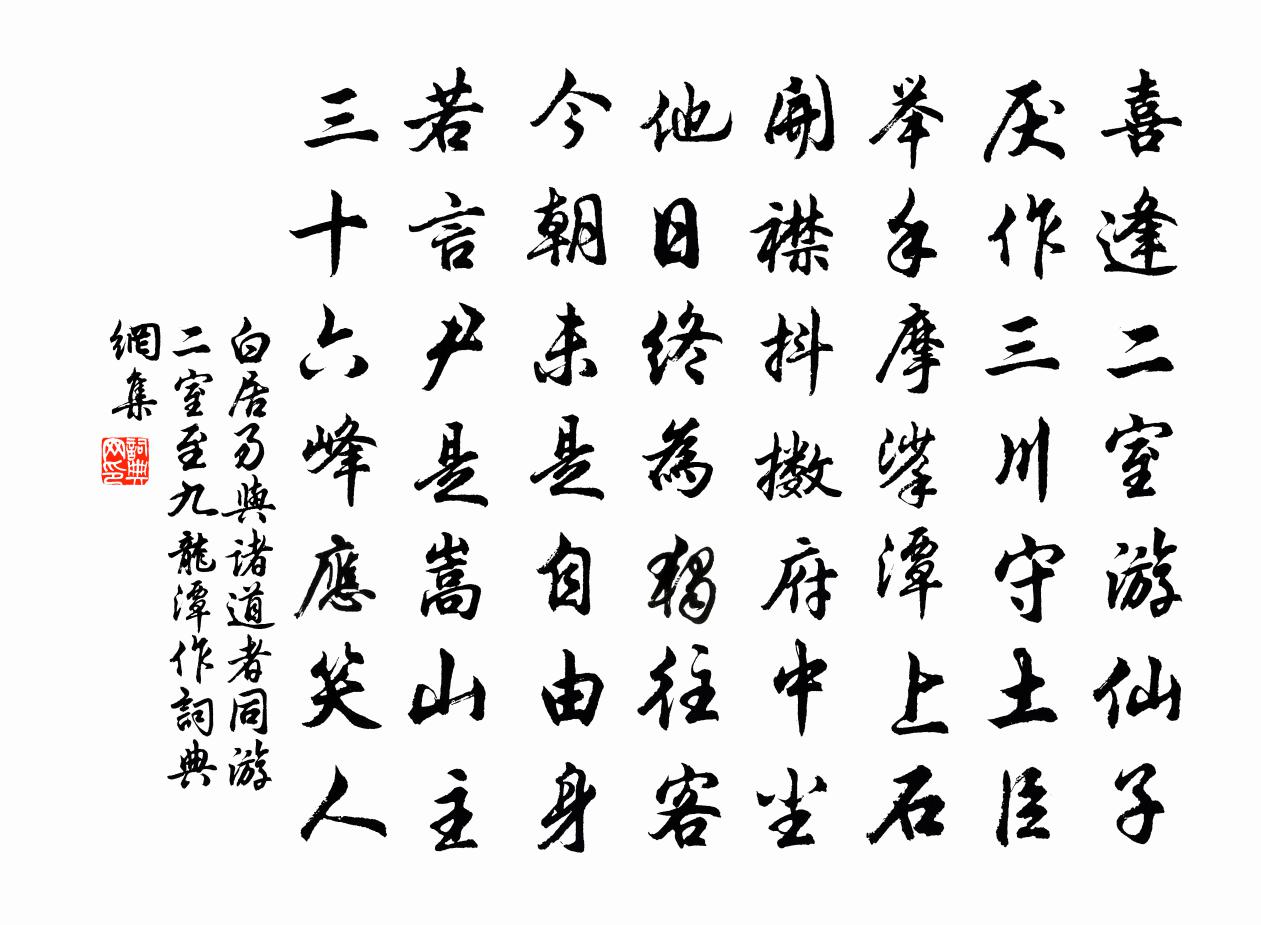 喜逢二室游仙子
厌作三川守土臣
举手摩挲潭上石
開襟抖擻府中尘
他日終為獨往客
今朝未是自由身
若言尹是嵩山主
三十六峰應笑人
白居易與諸道者同游
二室至九龍潭作詞典
網集
詞典
网印